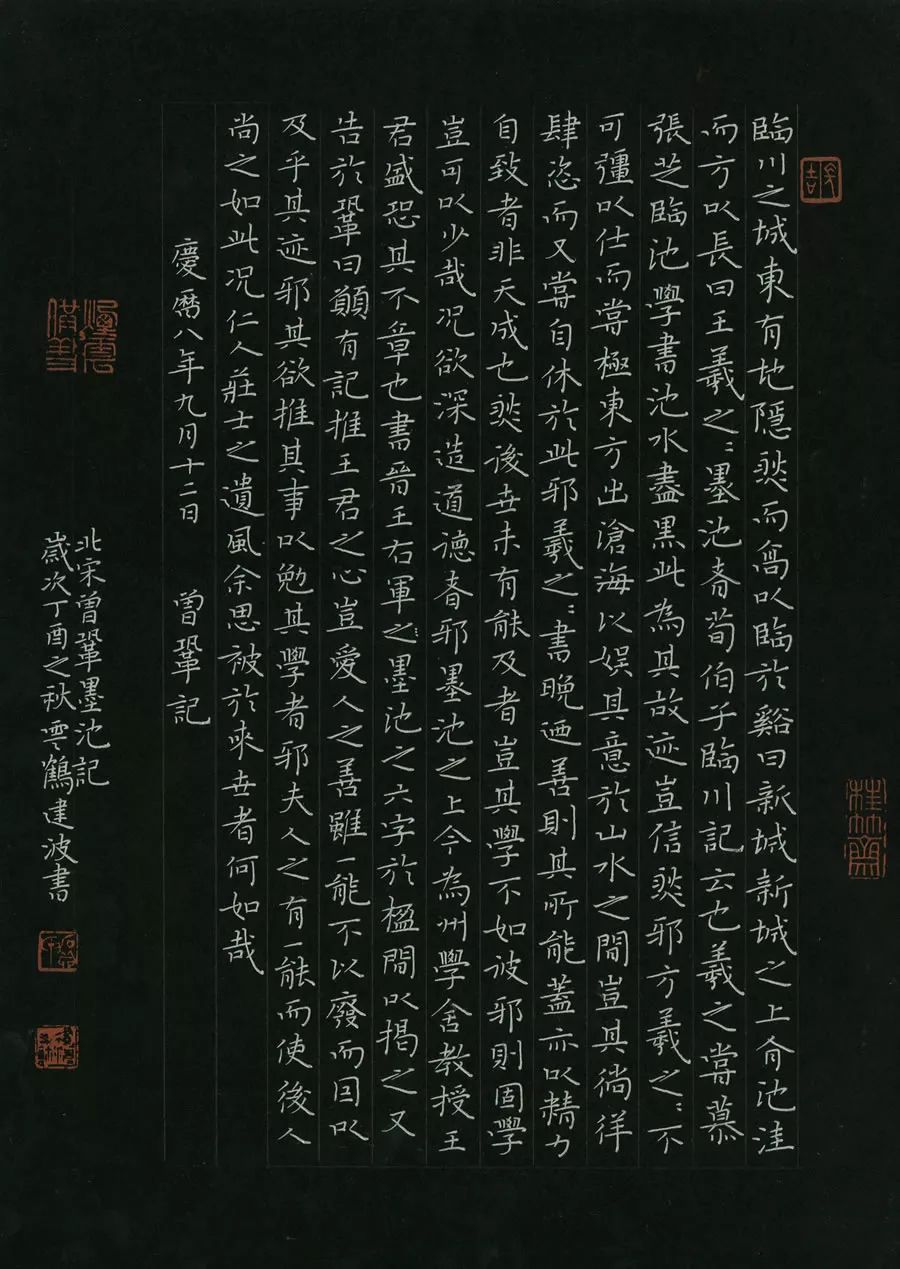 臨川之城東有地隱然而高以臨於谿曰新城新城之上有池洼
而方以長曰王羲之:墨池者荀伯子臨川記云也羲之嘗慕
張芝臨池學書池水盡黑此為其故迹豈信然邪方羲之:不
可彊以仕而嘗極東方出滄海以娱其意於山水之間豈其徜徉
肆恣而又嘗自休於此邪羲之:書晚迺善則其所能蓋亦以精力
自致者非天成也然後世未有能及者豈其學不如彼邪則固學
豈可以少哉况欲深造道德者邪墨池之上今為州學舍教授王
君盛恐其不章也書晉王右軍之:墨池之六字於楹間以揭之又
告於鞏曰顚有記推王君之心豈愛人之善雖一能不以廢而因以
及乎其迹邪其欲推其事以勉其學者邪夫人之有一能而使後人
尚之如此况仁人莊士之遺風余思被於來世者何如哉
慶曆八年九月十二日 曾鞏記
北宋曾鞏墨池記
歲次丁酉之秋雲鶴建波書
桂竹齋